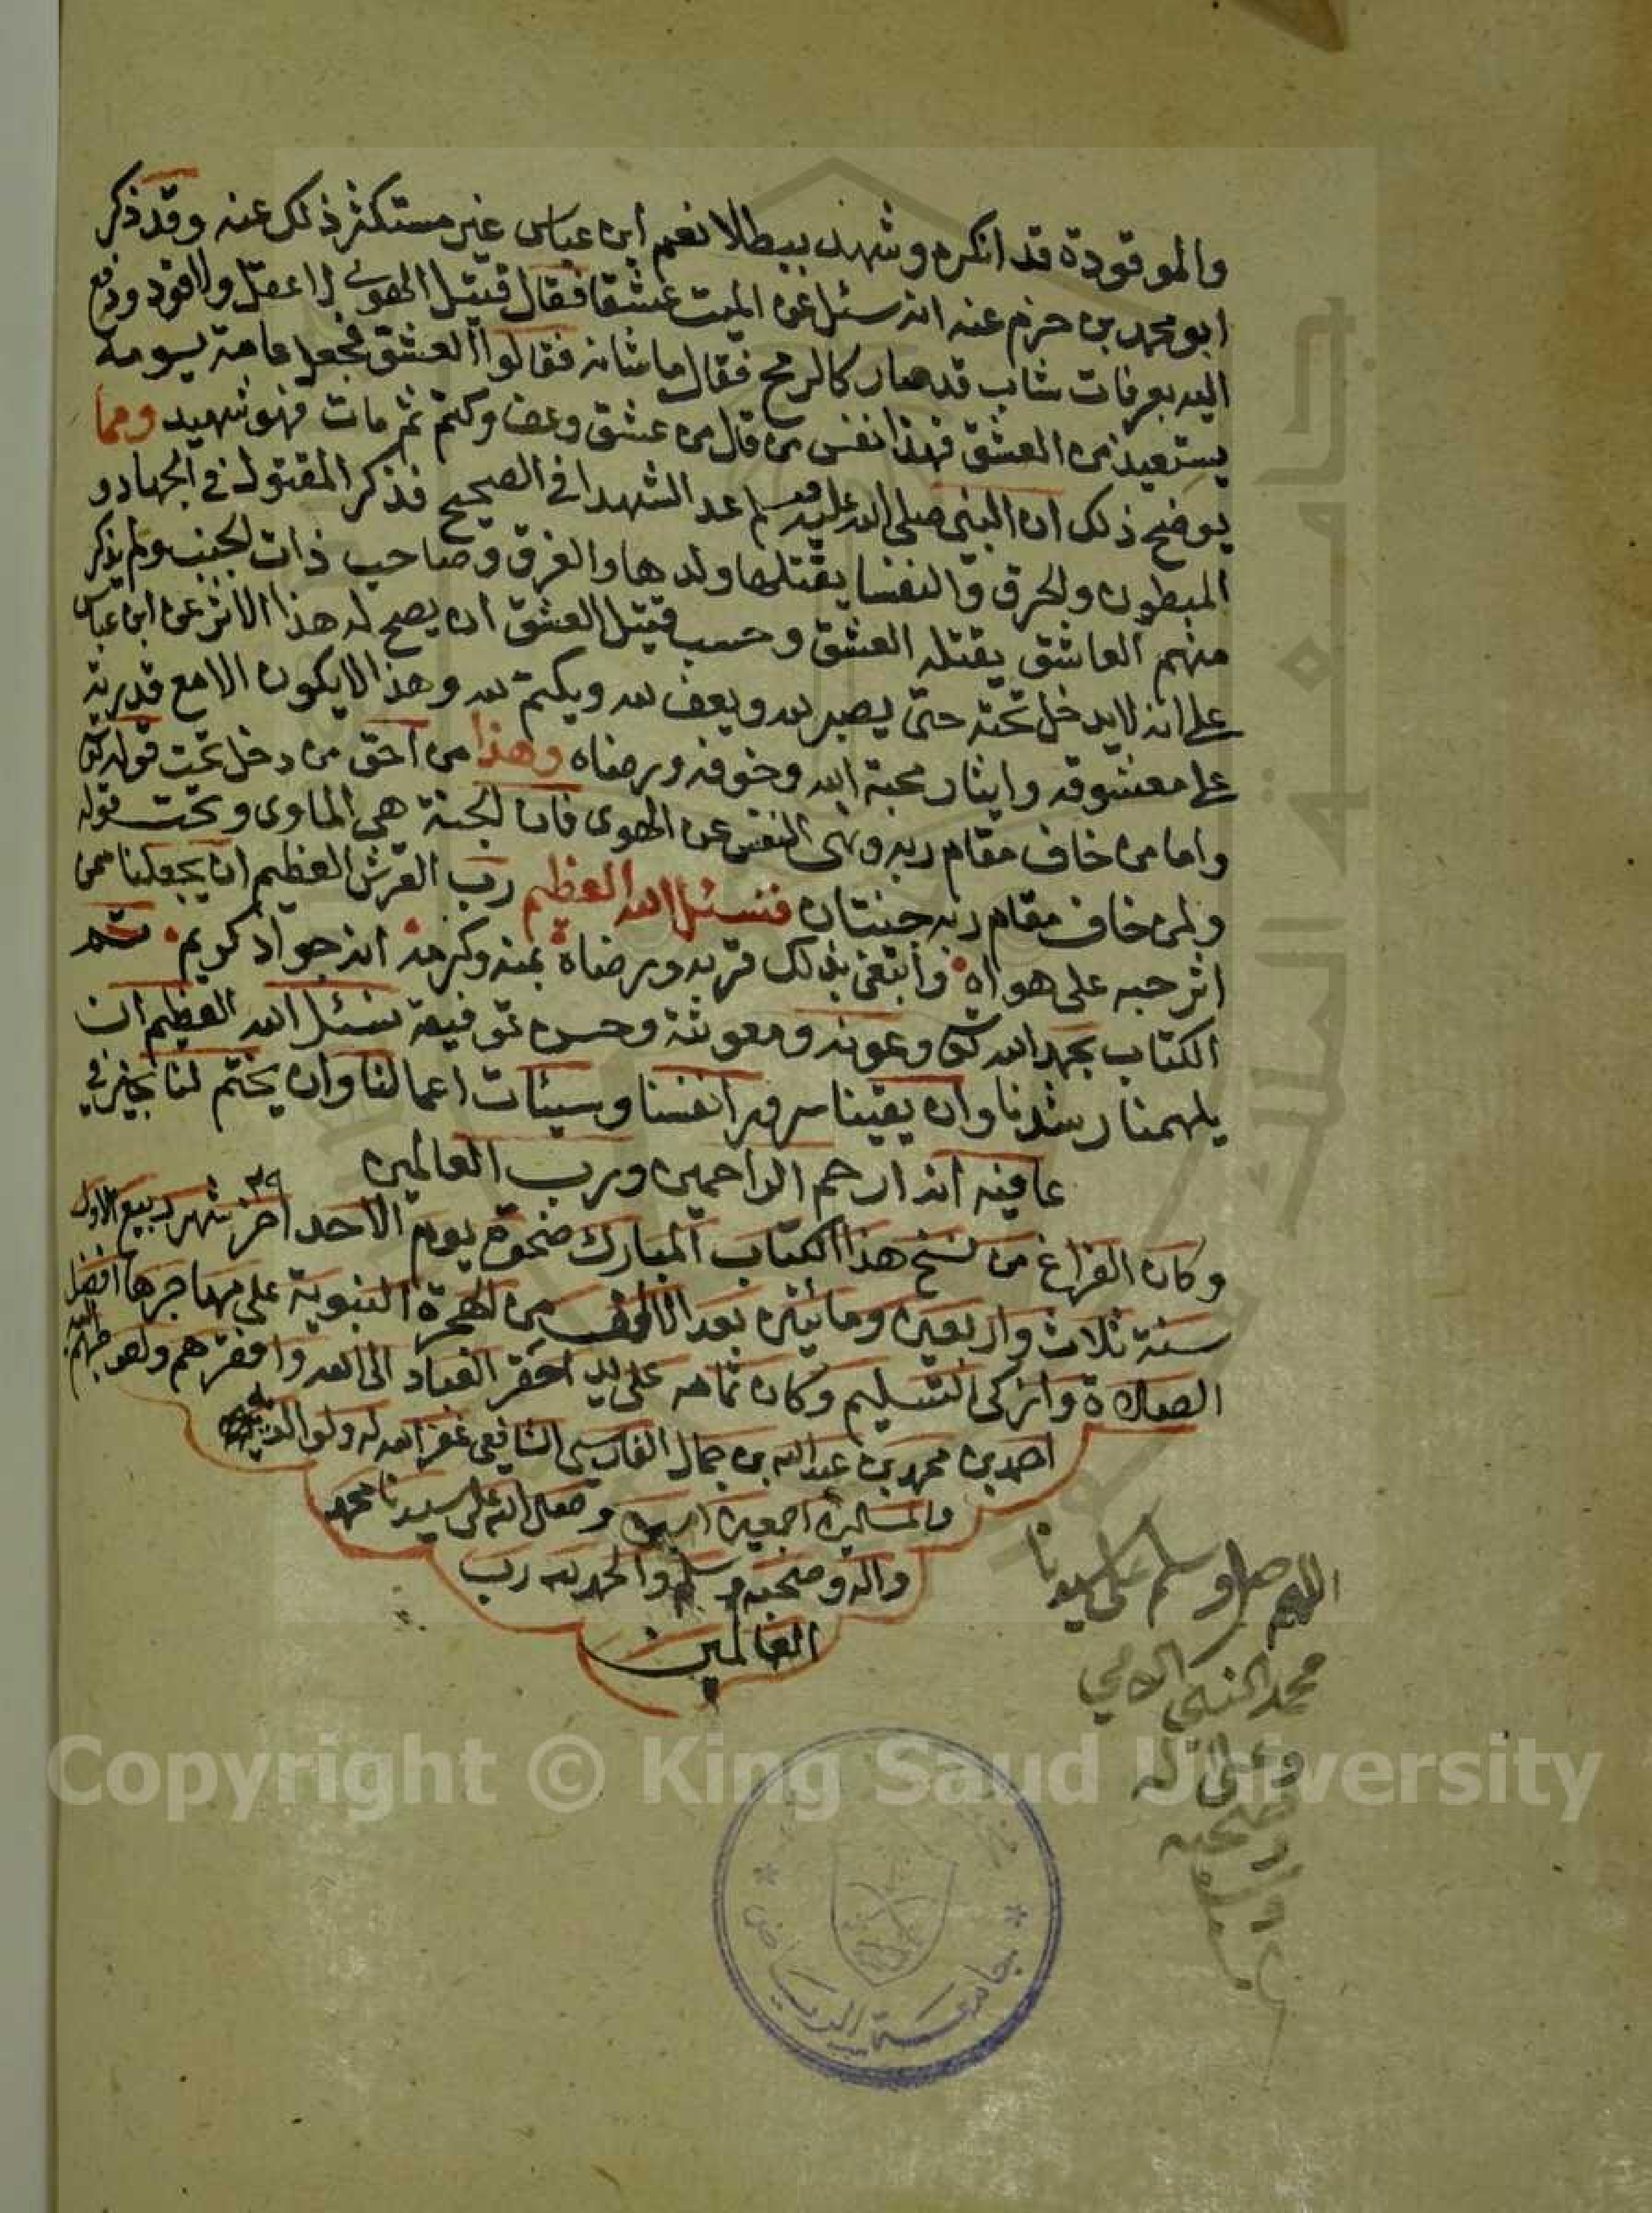 والموقوذة قد انكره وشهد ببطلانه نعم ابن عباس غير مستكثر ذلك عنه وقد ذكر
ابو محمد بن حزم عنه انه سئل عن الميت عشقا فقال قتيل الهوى لا عقل ولا قود ورفع
اليه بعرفات شاب قد صار كالرمح فقال ما شانه فقالوا العشق فجعل عامة يومه
يستعيذ من العشق فهذا نفس من قال من عشق وعف وكتم ثم مات فهو شهيد ومما
يوضح ذلك ان النبي صلى الله عليه وسلم عد الشهدا في الصحيح فذكر المقتول في الجهاد و
المبطون والحرق والنفسا يقتلها ولدها والغرق وصاحب ذات الجنب ولم يذكر
منهم العاشق يقتله العشق وحسب قتيل العشق ان يصح له هذا الاثر عن ابن عباس
على انه لا يدخل تحته حتى يصبر لله ويعف لله ويكتم لله وهذا لا يكون الا مع قدرته
على معشوقه وايثار محبة الله وخوفه ورضاه وهذا من احق من دخل تحت قوله تعالى
واما من خاف مقام ربه ونهى النفس عن الهوى فان الجنة هي الماوى وتحت قوله
ولمن خاف مقام ربه جنتان فنسئل الله العظيم رب العرش العظيم ان يجعلنا ممن
اثر حبه على هواه وابتغى بذلك قربه ورضاه بمنه وكرمه انه جواد كريم تم
الكتاب بحمد الله تعالى وعونه ومعونته وحسن توفيقه نسئل الله العظيم ان
يلهمنا رشدنا وان يقينا شرور انفسنا وسيئات اعمالنا وان يختم لنا بخير في
عافيه انه ارحم الراحمين ورب العالمين
وكان الفراغ من نسخ هذا الكتاب المبارك ضحوة يوم الاحد اخر ٢٩ شهر ربيع الاول
سنة ثلاث واربعين ومائتين بعد الالف من الهجرة النبوية على مهاجرها افضل
الصلاة وازكى التسليم وكان تمامه على يد احقر العباد الى الله وافقرهم واحوجهم اليه
احمد بن محمد بن عبد الله بن جمال الفارسي الشافعي غفر الله له ولوالديه
والمسلمين اجمعين امين وصلى الله على سيدنا محمد
واله وصحبه وسلم والحمد لله رب
العالمين
اللهم صل وسلم على سيدنا
محمد النبي الامي
وعلى اله
وصحبه
جامعة الرياض
Copyright © King Saud University